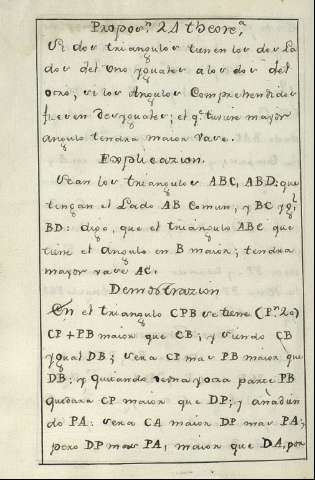 Propos.ⁿ 24 theore.ª
Si dos triangulos tienen los dos La
dos del uno yguales a los dos del
otro, si los Angulos Comprehendidos
fueren desyguales; el q.e tuviere mayor
angulo tendra maior vase.
Explicazion.
Sean los triangulos ABC, ABD: que
tengan el Lado AB Comun, y BC yg.l
BD: digo, que el triangulo ABC que
tiene el angulo en B maior; tendra
mayor vase AC.
Demostrazion
En el triangulo CPB se tiene (P.n 20)
CP+PB maior que CB; y siendo CB
ygual DB; sera CP mas PB maior que
DB; y quitando de una y otra parte PB
quedara CP maior que DP; y añadien
do PA: sera CA maior DP mas PA;
pero DP mas PA, maior que DA, por